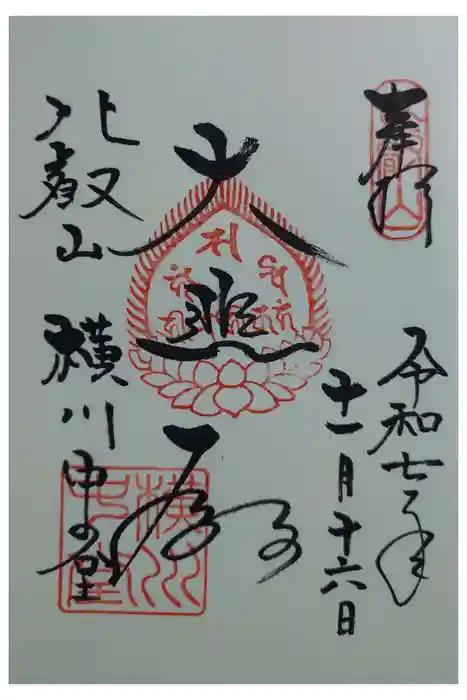 奉拝
令和七年
十一月十六日
大悲殿
比叡山 横川中堂